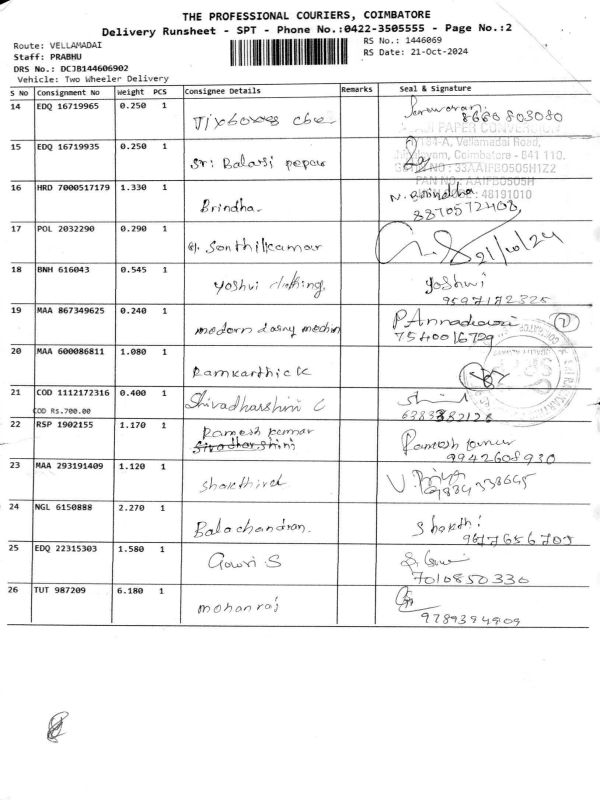 THE PROFESSIONAL COURIERS, COIMBATORE
Delivery Runsheet - SPT - Phone No.:0422-3505555 - Page No.:2
Route: VELLAMADAI
RS No.: 1446069
Staff: PRABHU
RS Date: 21-Oct-2024
DRS No.: DCJB144606902
Vehicle: Two Wheeler Delivery
S No Consignment No Weight PCS Consignee Details Remarks Seal & Signature
14 EDQ 16719965 0.250 1
8680803080
15 EDQ 16719935 0.250 1 Sri Balaji
PAPER CONVERSION
Vellamadai Road,
Coimbatore - 641 110.
33AAIFB0505H1Z2
PAN NO : AAIFB0505H
48191010
16 HRD 7000517179 1.330 1 Brindha. N. Brindha
8870572408
17 POL 2032290 0.290 1 Senthilkumar 21/10/24
18 BNH 616043 0.545 1 Yoshvi clothing. Yoshvi
9597172325
19 MAA 867349625 0.240 1 modern
7540016729
20 MAA 600086811 1.080 1 Ramkarthick
21 COD 1112172316 0.400 1 Shivadharshini C
COD Rs.700.00
22 RSP 1902155 1.170 1 Ramesh kumar Ramesh kumar
9942608930
23 MAA 293191409 1.120 1 Shakthivel V. Priya
9884338645
24 NGL 6150888 2.270 1 Balachandran. Shakthi
25 EDQ 22315303 1.580 1 Gowri S
7010850330
26 TUT 987209 6.180 1 mohanraj
9789394909